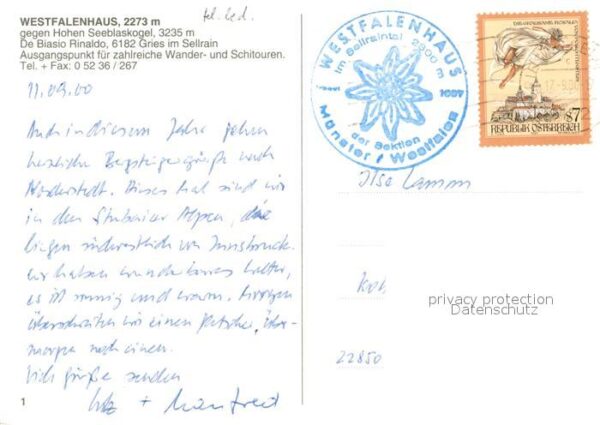 WESTFALENHAUS, 2273 m
gegen Hohen Seeblaskogel, 3235 m
De Biasio Rinaldo, 6182 Gries im Sellrain
Ausgangspunkt für zahlreiche Wander- und Schitouren.
Tel. + Fax: 0 52 36 / 267
tel. led.
11.09.00
Auch in diesem Jahre gehen
herzliche Bergsteigergrüße nach
Norderstedt. Dieses Mal sind wir
in den Stubaier Alpen, die
liegen südwestlich von Innsbruck.
wir haben wunderbares Wetter,
es ist sonnig und warm. Morgen
überschreiten wir einen Gletscher, über-
morgen noch einen.
Viele Grüße senden
+ Manfred
1
WESTFALENHAUS
im Sellraintal 2300 m
1987
der Sektion
Münster / Westfalen
17.-9.00
S7
REPUBLIK ÖSTERREICH
Ilse Lamm
privacy protection
Datenschutz
22850